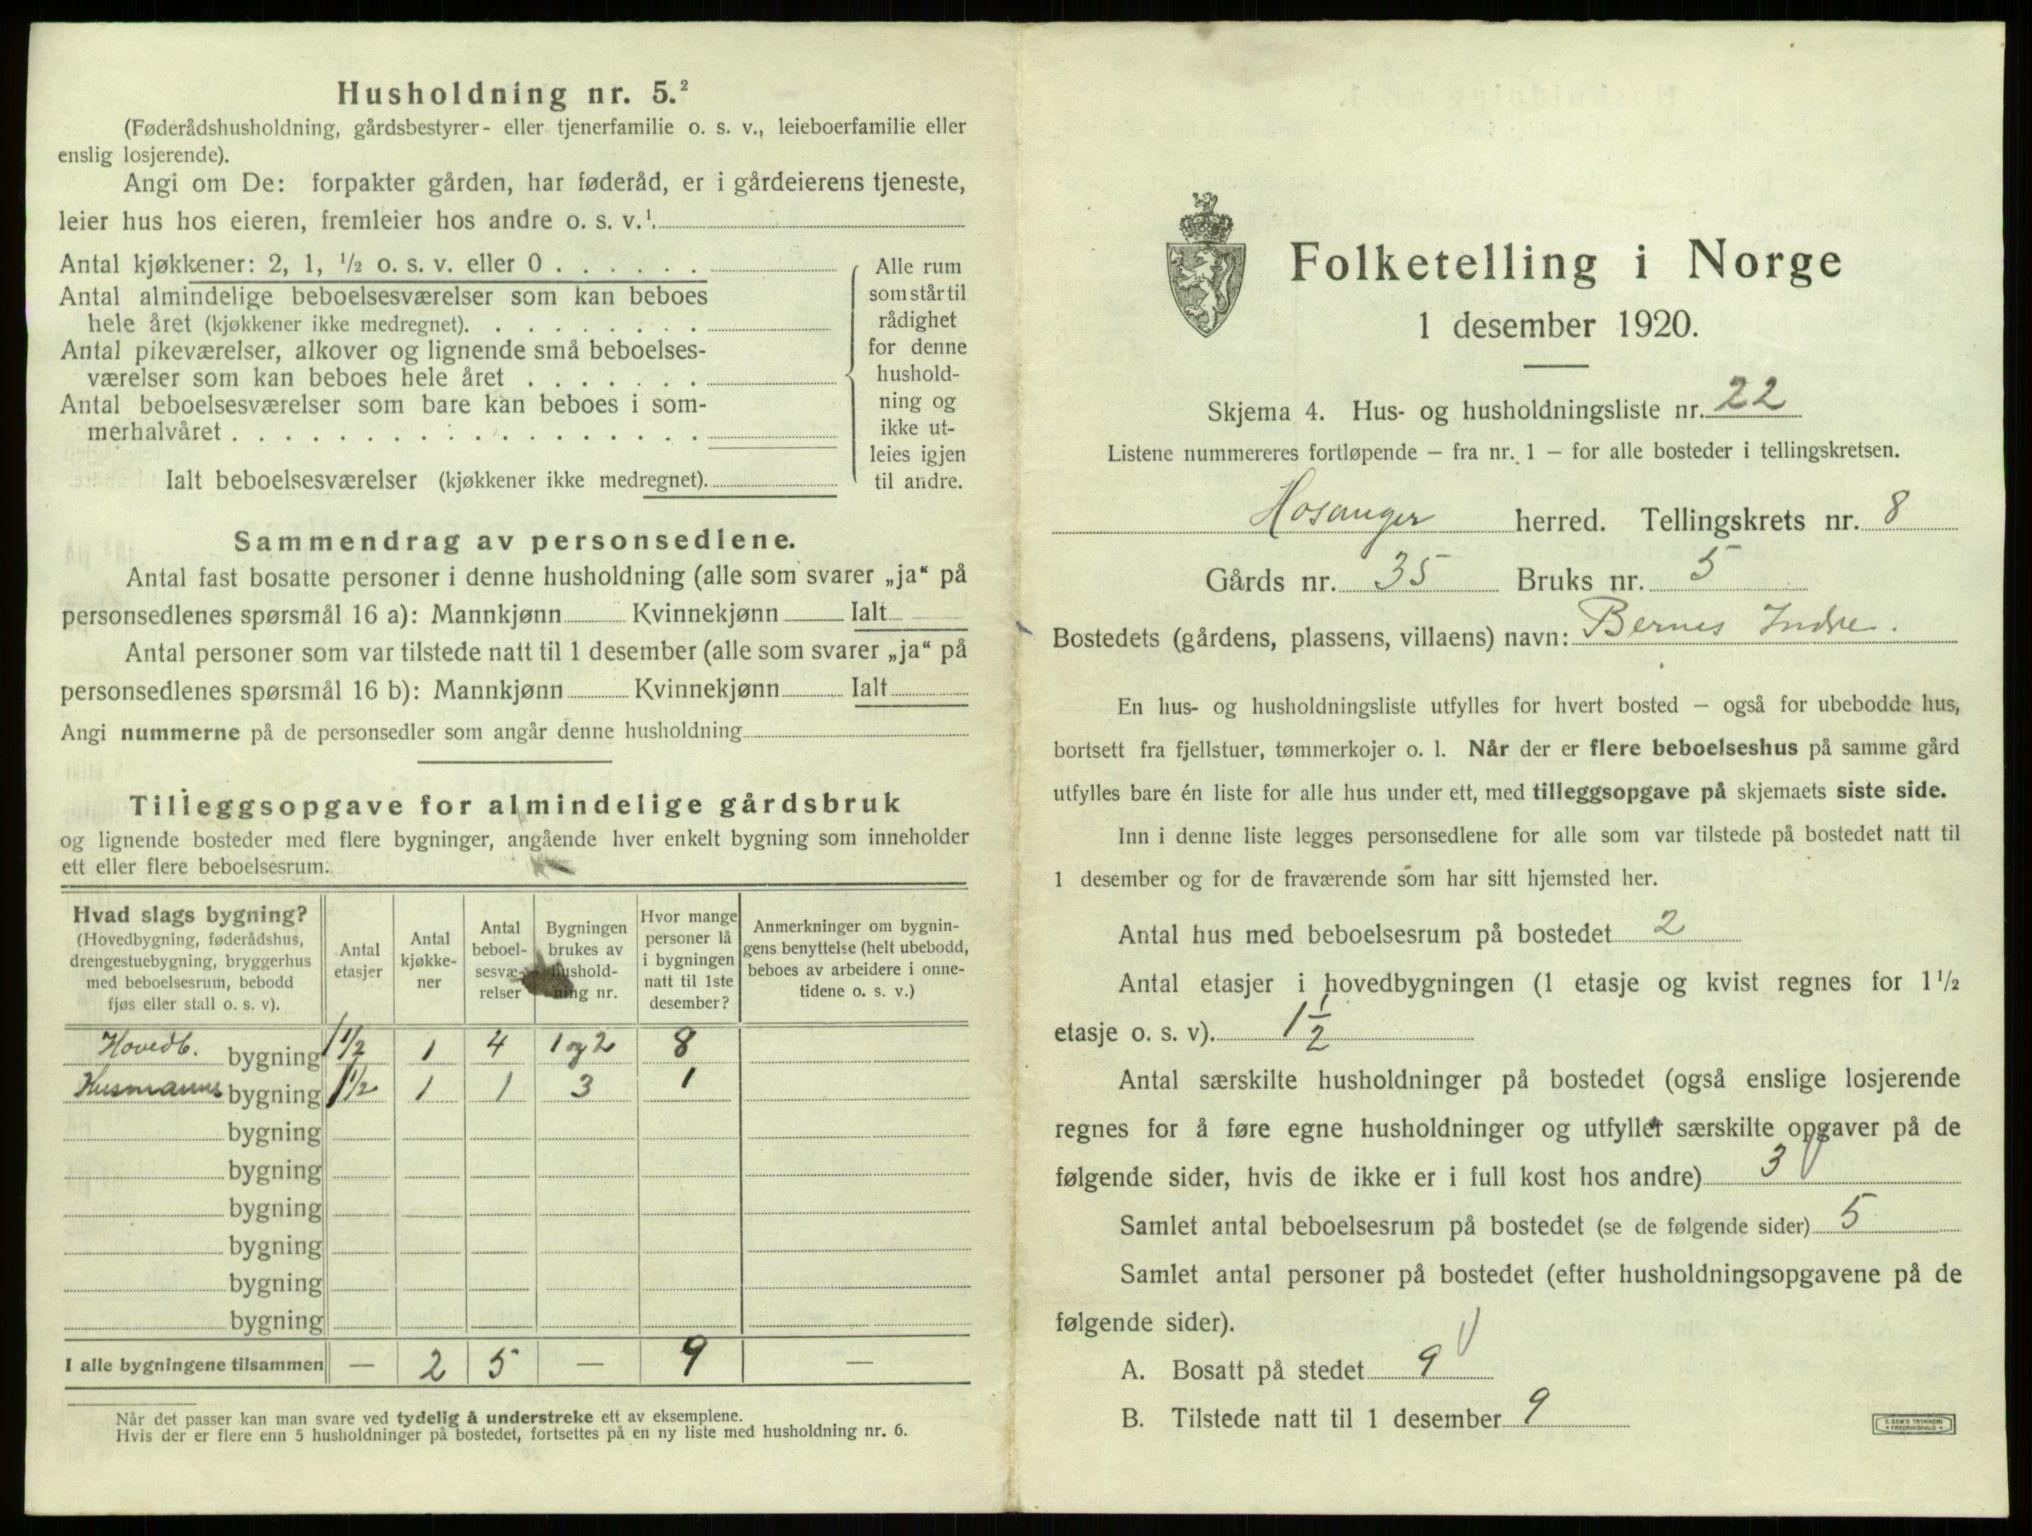 Husholdning nr. 5.²
(Føderådshusholdning, gårdsbestyrer- eller tjenerfamilie o. s. v., leieboerfamilie eller
enslig losjerende).
Angi om De: forpakter gården, har føderåd, er i gårdeierens tjeneste,
leier hus hos eieren, fremleier hos andre o. s. v.¹
Antal kjøkkener: 2, 1, ½ o. s. v. eller 0 . . . . . .
Antal almindelige beboelsesværelser som kan beboes
hele året (kjøkkener ikke medregnet). . . . . . . . .
Antal pikeværelser, alkover og lignende små beboelses-
værelser som kan beboes hele året . . . . . . .
Antal beboelsesværelser som bare kan beboes i som-
merhalvåret . . . . . . . . . . . . . . . . . .
Ialt beboelsesværelser (kjøkkener ikke medregnet).
Alle rum
som står til
rådighet
for denne
hushold-
ning og
ikke ut-
leies igjen
til andre.
Sammendrag av personsedlene.
Antal fast bosatte personer i denne husholdning (alle som svarer „ja“ på
personsedlenes spørsmål 16 a): Mannkjønn Kvinnekjønn Ialt
Antal personer som var tilstede natt til 1 desember (alle som svarer „ja“ på
personsedlenes spørsmål 16 b): Mannkjønn Kvinnekjønn Ialt
Angi nummerne på de personsedler som angår denne husholdning
Tilleggsopgave for almindelige gårdsbruk
og lignende bosteder med flere bygninger, angående hver enkelt bygning som inneholder
ett eller flere beboelsesrum.
Hvad slags bygning?
(Hovedbygning, føderådshus,
drengestuebygning, bryggerhus
med beboelsesrum, bebodd
fjøs eller stall o. s. v).
Antal
etasjer
Antal
kjøkke-
ner
Antal
beboel-
sesvæ-
relser
Bygningen
brukes av
hushold-
ning nr.
Hvor mange
personer lå
i bygningen
natt til 1ste
desember?
Anmerkninger om bygnin-
gens benyttelse (helt ubebodd,
beboes av arbeidere i onne-
tidene o. s. v.)
Hovedb. bygning 1½ 1 4 1 og 2 8
Husmanns bygning 1½ 1 1 3 1
bygning
bygning
bygning
bygning
bygning
bygning
I alle bygningene tilsammen — 2 5 — 9 —
Når det passer kan man svare ved tydelig å understreke ett av eksemplene.
Hvis der er flere enn 5 husholdninger på bostedet, fortsettes på en ny liste med husholdning nr. 6.
Folketelling i Norge
1 desember 1920.
Skjema 4. Hus- og husholdningsliste nr. 22
Listene nummereres fortløpende – fra nr. 1 – for alle bosteder i tellingskretsen.
Hosanger herred. Tellingskrets nr. 8
Gårds nr. 35 Bruks nr. 5
Bostedets (gårdens, plassens, villaens) navn: Bernes Indre.
En hus- og husholdningsliste utfylles for hvert bosted – også for ubebodde hus,
bortsett fra fjellstuer, tømmerkojer o. l. Når der er flere beboelseshus på samme gård
utfylles bare én liste for alle hus under ett, med tilleggsopgave på skjemaets siste side.
Inn i denne liste legges personsedlene for alle som var tilstede på bostedet natt til
1 desember og for de fraværende som har sitt hjemsted her.
Antal hus med beboelsesrum på bostedet 2
Antal etasjer i hovedbygningen (1 etasje og kvist regnes for 1½
etasje o. s. v). 1½
Antal særskilte husholdninger på bostedet (også enslige losjerende
regnes for å føre egne husholdninger og utfyller særskilte opgaver på de
følgende sider, hvis de ikke er i full kost hos andre) 3
Samlet antal beboelsesrum på bostedet (se de følgende sider) 5
Samlet antal personer på bostedet (efter husholdningsopgavene på de
følgende sider).
A. Bosatt på stedet 9
B. Tilstede natt til 1 desember 9